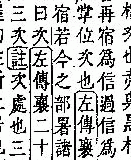 再宿爲信過信爲
掌位次也左傳襄
宿若今之部署諸
曰次左傳襄二十
三次註次處也三